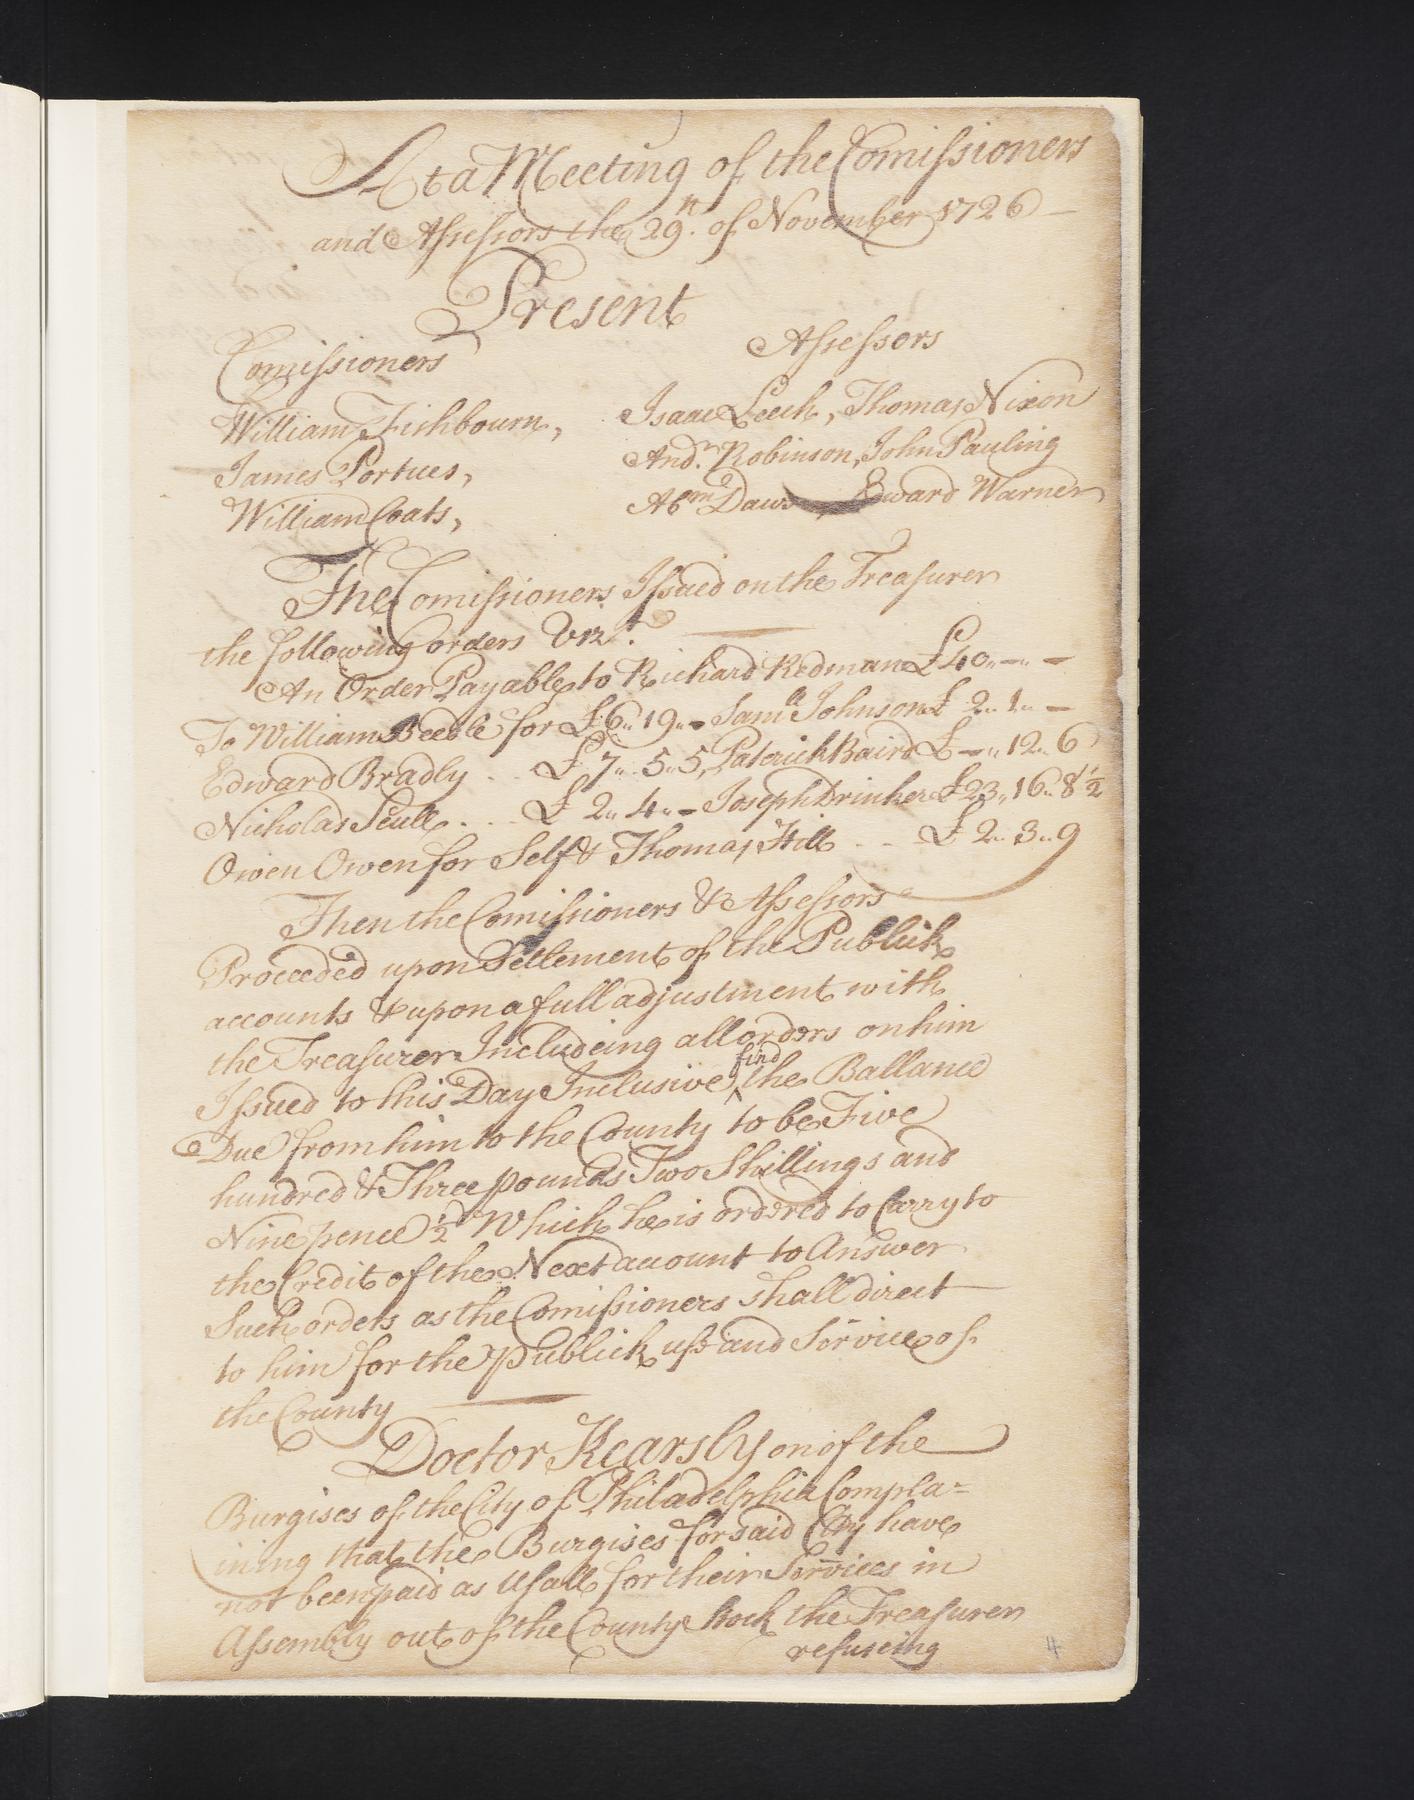 At a Meeting of the Comissioners
and Assessors the 29th. of November 1726
Present
Comissioners
Assessors
William Fishbourn,
Isaac Leech, Thomas Nixon
James Portues,
Andw. Robinson, John Pauling
William Coats,
Abm Daws, Edward Warner
The Comissioners Issued on the Treasurer
the following orders Vizt.
An Order Payable to Richard Redman £40,,-,,-
To William Beedle for £6,,19,,- Saml Johnson £ 2,,1,,-
Edward Bradly .. £7,,5,,5, Paterick Baird £-,,12,,6
Nicholas Scull ... £ 2,,4,,- Joseph Drinker £23,,16,,8½
Owen Owen for Self & Thomas Hill .. £ 2,,3,,9
Then the Comissioners & Assessors
Proceeded upon Settlement of the Publick
accounts & upon a full adjustment with
the Treasurer Includeing all orders on him
Issued to this Day Inclusive find the Ballance
Due from him to the County to be Five
hundred & Three pounds Two Shillings and
Nine pence ½d Which he is ordered to Carry to
the Credit of the Next account to Answer
Such orders as the Comissioners shall direct
to him for the Publick use and Service of
the County
Doctor Kearsly on of the
Burgises of the City of Philadelphia Compla=
ining that the Burgises for said City have
not been paid as Usall for their Services in
Assembly out of the County Stock the Treasurer
refuseing
4